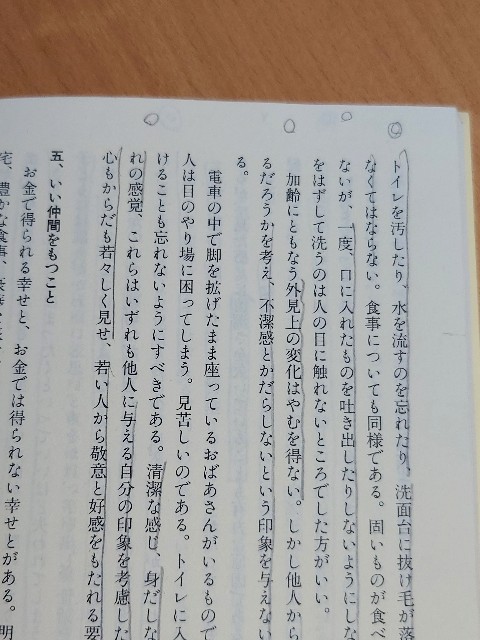 トイレを汚したり、水を流すのを忘れたり、洗面台に抜け毛が落
なくてはならない。食事についても同様である。固いものが食べ
ないが、一度、口に入れたものを吐き出したりしないようにしな
をはずして洗うのは人の目に触れないところでした方がいい。
加齢にともなう外見上の変化はやむを得ない。しかし他人から
るだろうかを考え、不潔感とかだらしないという印象を与えない
る。
電車の中で脚を拡げたまま座っているおばあさんがいるもので
人は目のやり場に困ってしまう。見苦しいのである。トイレに入
けることも忘れないようにすべきである。清潔な感じ、身だしな
れの感覚、これらはいずれも他人に与える自分の印象を考慮した
心もからだも若々しく見せ、若い人から敬意と好感をもたれる要
五、いい仲間をもつこと
お金で得られる幸せと、お金では得られない幸せとがある。明
宅、豊かな食事、